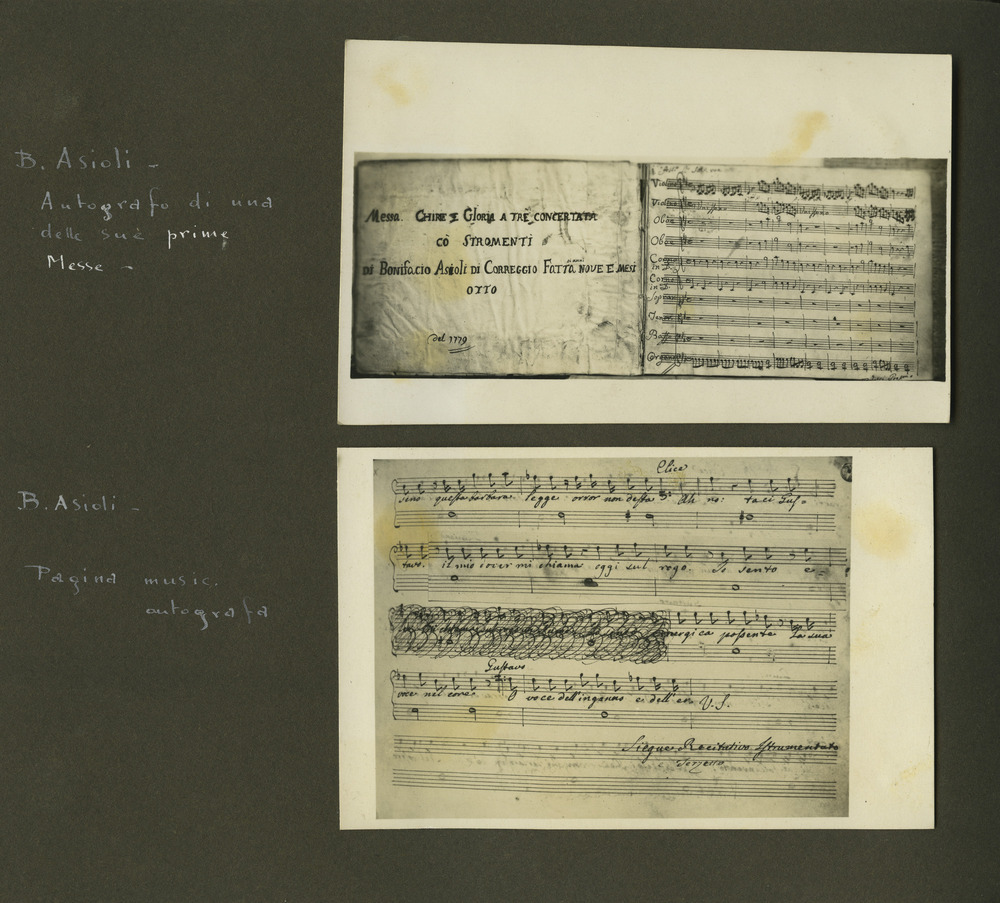 B. Asioli -
Autografo di una
delle sue prime
Messe -
Messa. CHIRE E GLORIA A TRE CONCERTATA
CÒ STROMENTI
DI BONIFACIO ASIOLI DI CORREGGIO FATTA NOVE E MESI
OTTO
del 1779
Violino
Violino
Oboè
Oboè
Corno
in D
Corno
in D
Soprano
Tenore
Basso
Organo
B. Asioli -
Pagina music.
autografa
Elice
seno questa barbara legge orror non desta Ah no: taci Gus-
tavo. il mio dover mi chiama oggi sul rogo. Io sento e-
energica possente La sua
Gustavo
voce nel core. O voce dell'inganno e dell'er V. S.
Siegue Recitativo Istrumentato
Terzetto